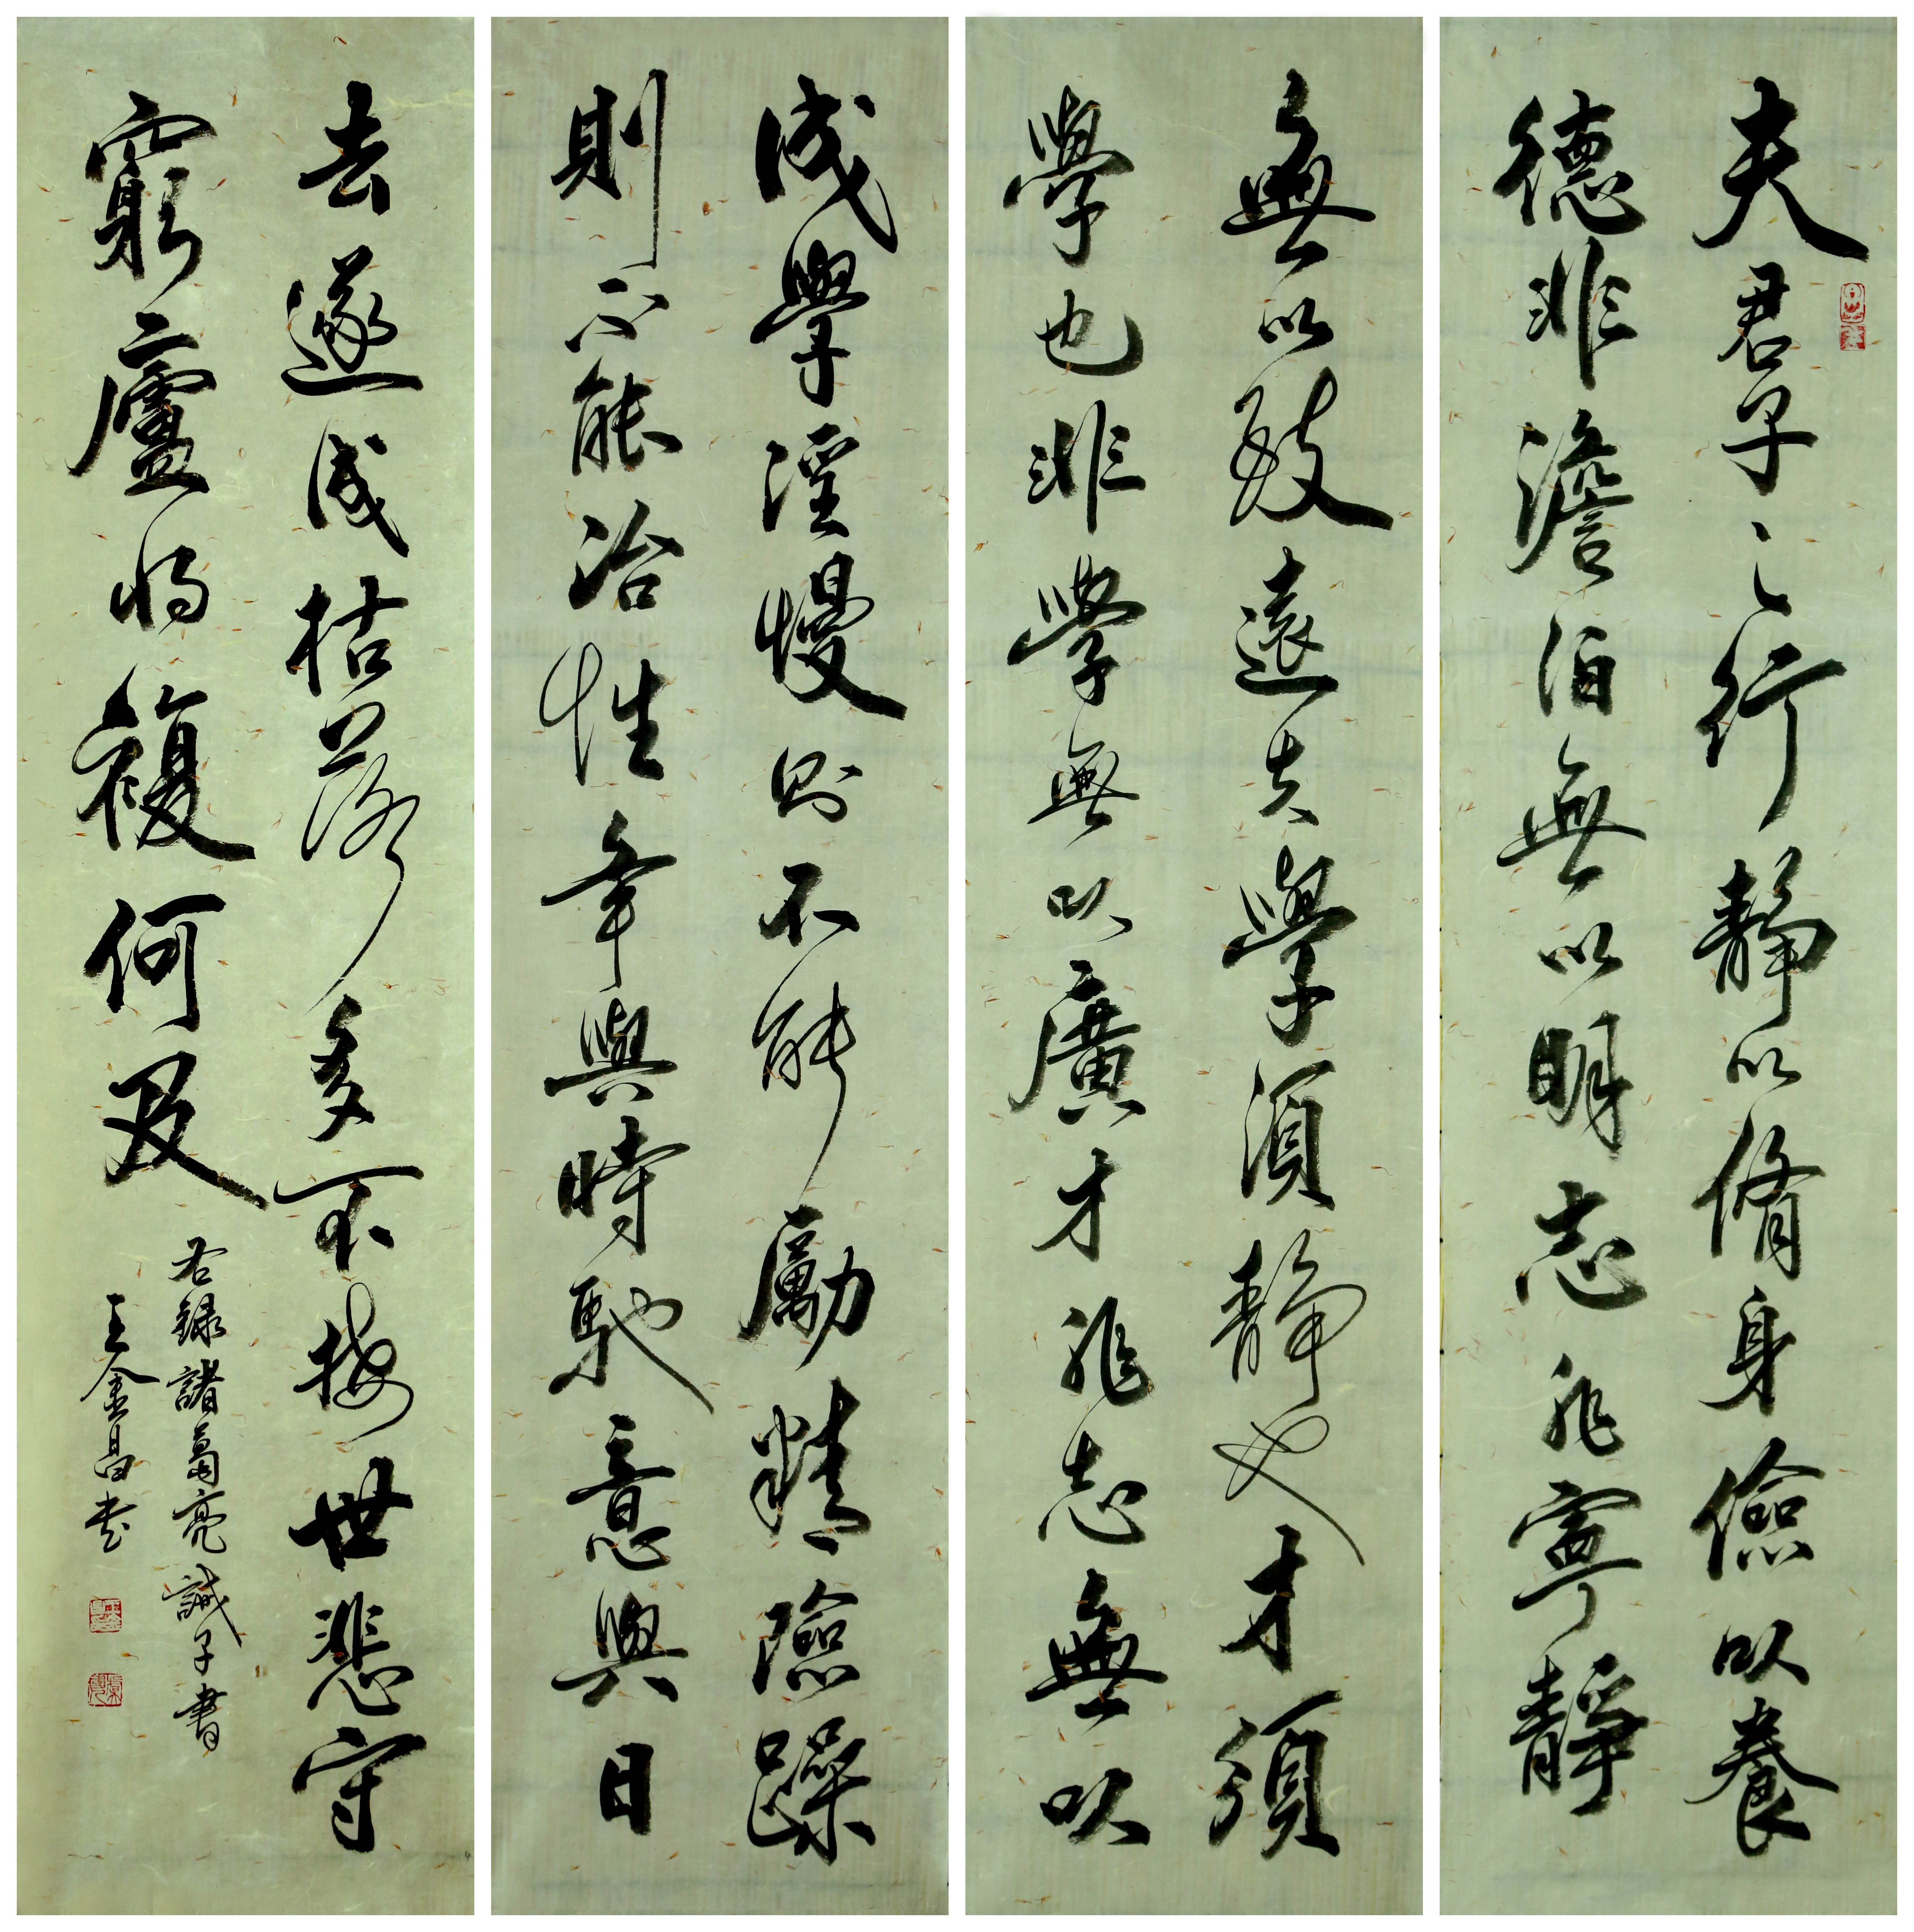 夫君子之行靜以脩身儉以養
德非澹泊無以明志非寧靜
無以致遠夫學須靜也才須
學也非學無以廣才非志無以
成學淫慢則不能勵精險躁
則不能治性年與時馳意與日
去遂成枯落多不接世悲守
窮廬將複何及
右録諸葛亮誡子書
王金昌书